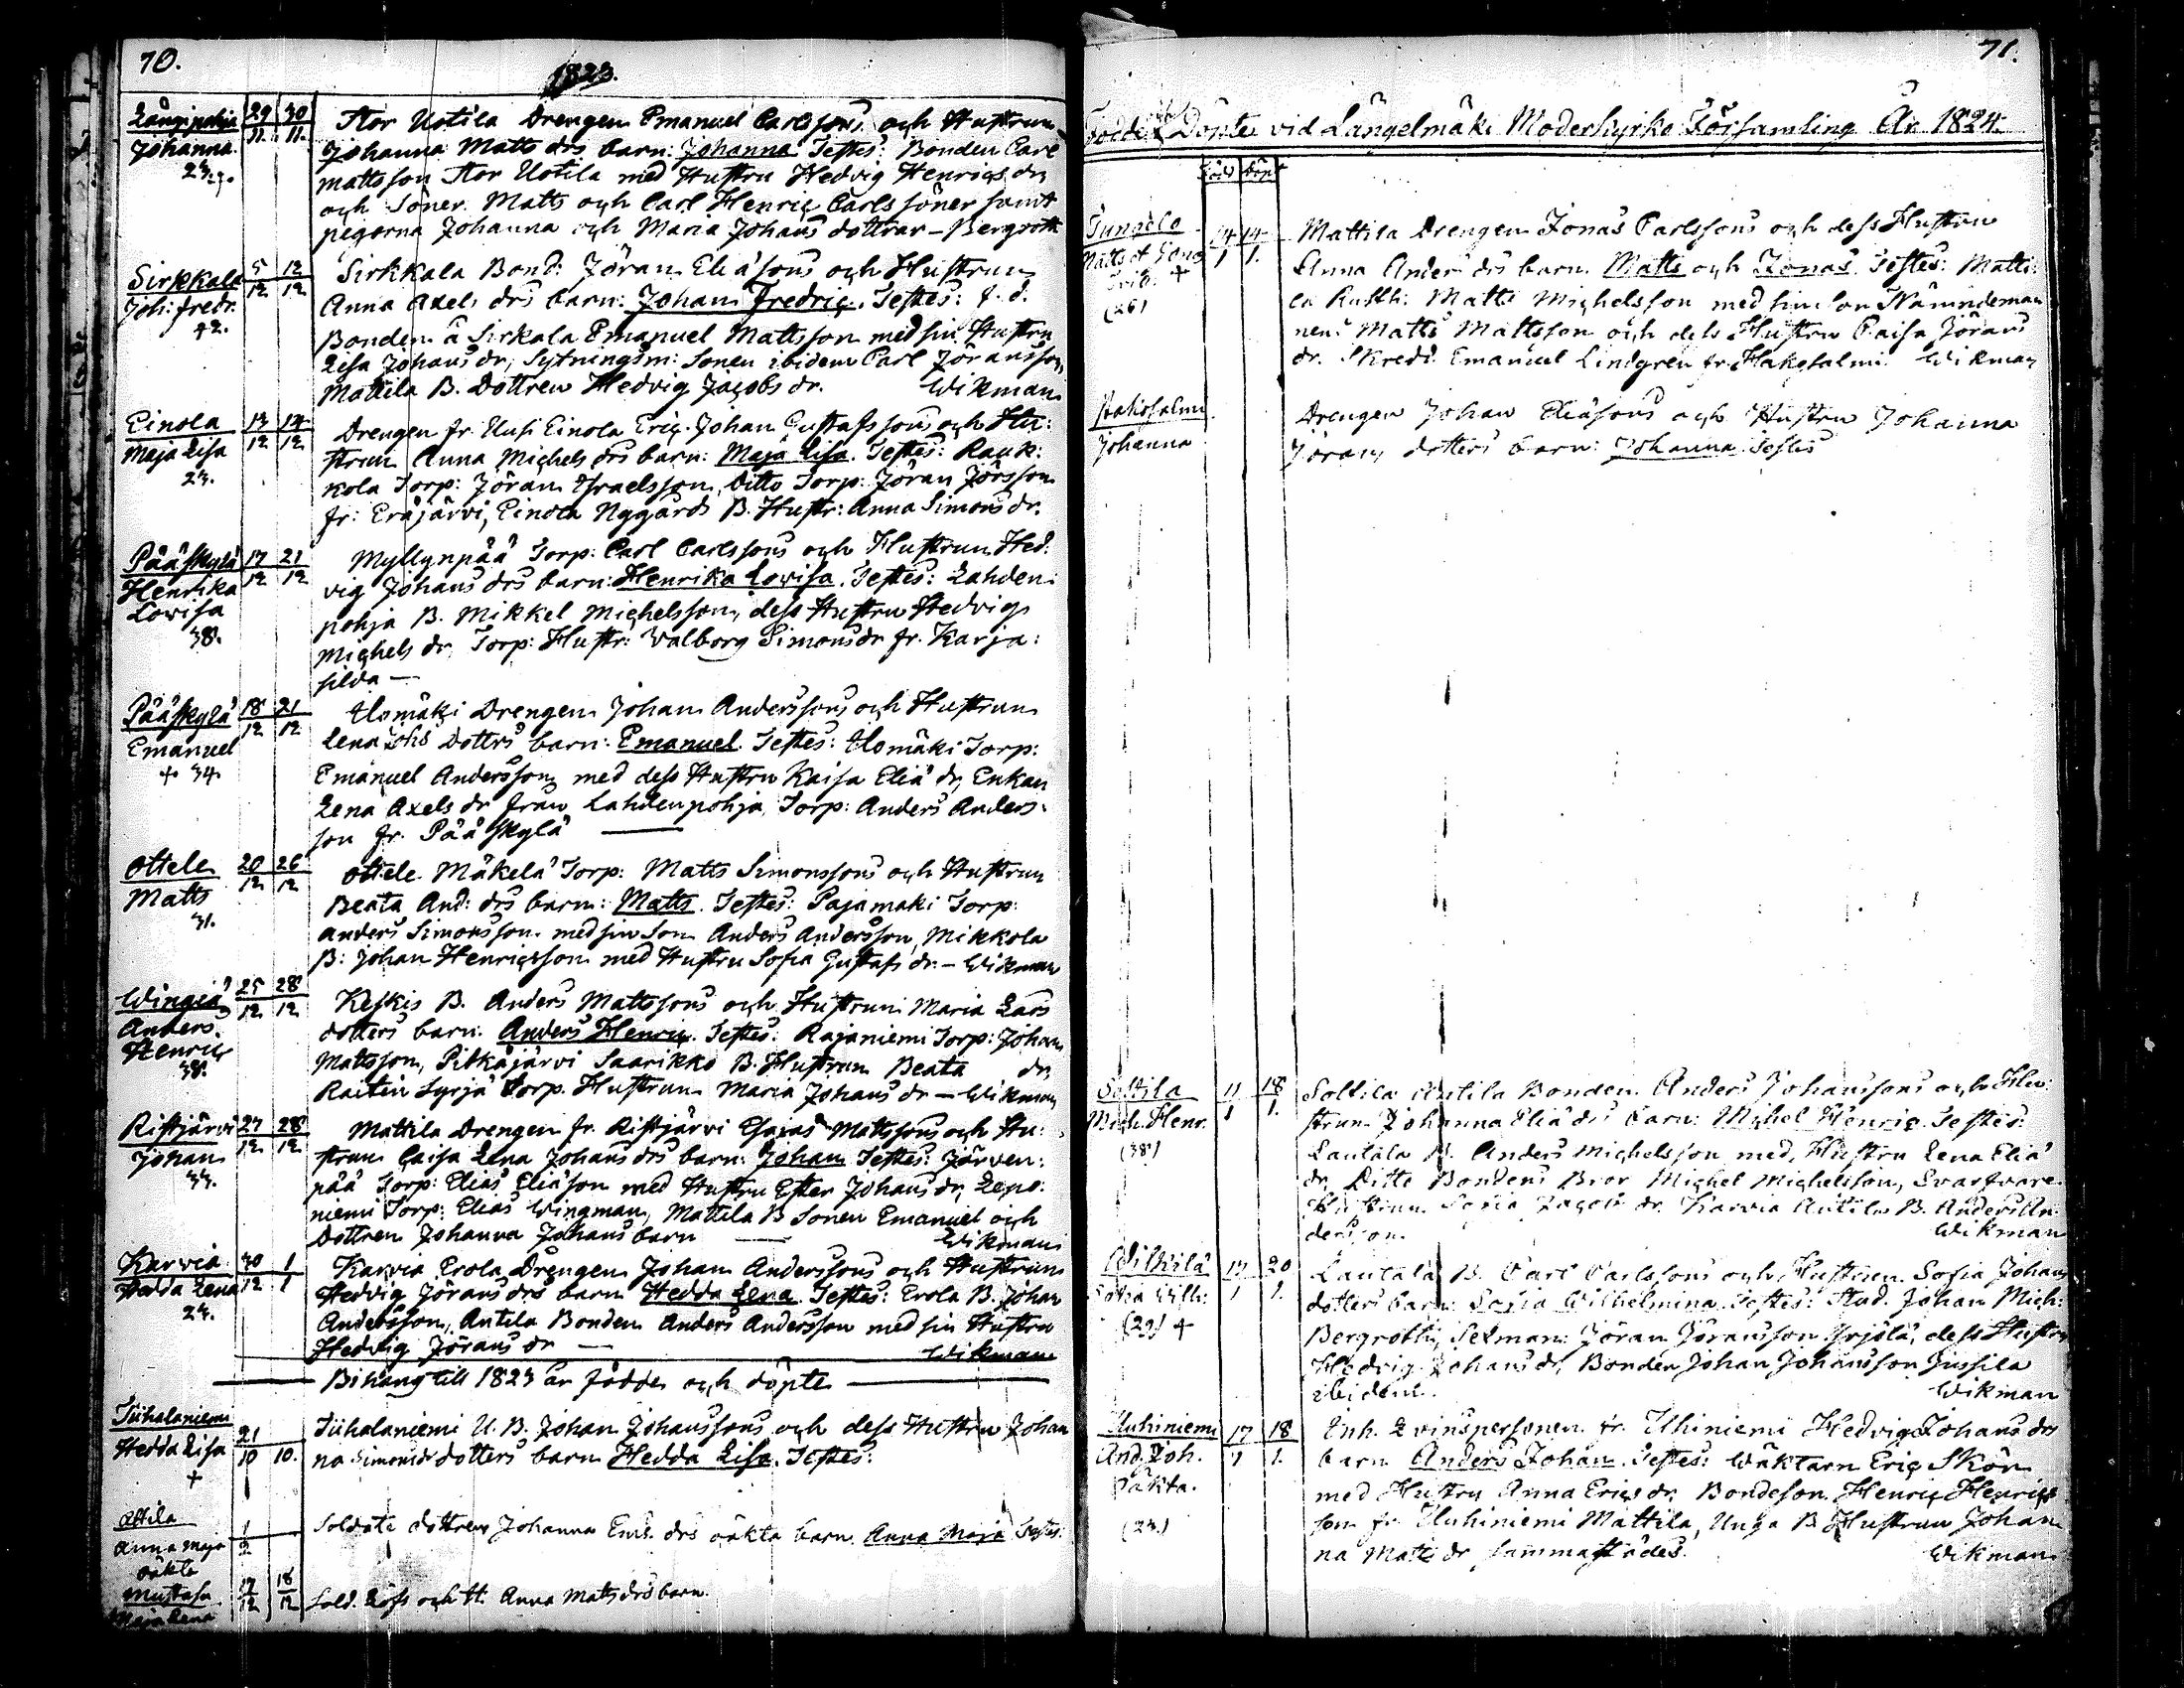 70.
1823.
Långipohja 29/11. 30/11. Stor Uotila Drengen Emanuel Carlssons och Hustrun
Johanna Johanna Matts drs barn: Johanna Testes: Bonden Carl
23. mattsson Stor Uotila med Hustru Hedvig Henrics dr,
och Söner Matts och Carl Henric Carls söner samt
pegorna Johanna och Maria Johans dottrar – Bergroth
Sirkkala 5/12 12/12 Sirkkala Bond: Jöran Eliäsons och Hustrun
Joh: fredr. Anna Axels drs barn: Johan Fredric. Testes: f. d.
42. Bonden å Sirkala Emanuel Mattsson med sin Hustru
Lisa Johans dr, Sytningsm: Sonen ibidem Carl Jöransson,
Mattila B. Dottren Hedvig Jacobs dr. Wikman
Einola 13/12 14/12 Drengen fr. Uusi Einola Eric Johan Gustafssons och Hu:
Maja Lisa strun Anna Michels drs barn: Maja Lisa. Testes: Rauk:
23. kola Torp: Jöran Israelsson, Ditto Torp: Jöran Jörsson
fr: Eräjärvi, Einola Nygårds B. Hustr: Anna Simons dr.
Pääskylä 17/12 21/12 Myllynpää Torp: Carl Carlssons och Hustrun Hed:
Henrika vig Johans drs barn: Henrika Lovisa. Testes: Lahden:
Lovisa pohja B. Mikkel Michelsson, dess Hustru Hedvig
38. Michels dr, Torp: Hustr: Valborg Simons dr fr. Karja:
silda —
Pääskylä 18/12 21/12 Alomäki Drengen Johan Anderssons och Hustrun
Emanuel Lena Johs Dotters barn: Emanuel. Testes: Alomäki Torp:
+ 34 Emanuel Andersson med dess Hustru Kaisa Eliä dr, Enkan
Lena Axels dr från Lahdenpohja, Torp: Anders Anders:
son fr. Pääskylä —
Ottele 20/12 26/12 Ottele Mäkelä Torp: Matts Simonssons och Hustrun
Matts Beata And: drs barn: Matts. Testes: Pajamaki Torp:
31. Anders Simonsson med sin Son Anders Andersson, Mikkola
B: Johan Henricsson med Hustru Sofia Gustafs dr – Wikman
25/12 28/12 Keskis B. Anders Mattssons och Hustrun Maria Lars
Anders dotters barn: Anders Henric. Testes: Rajaniemi Torp: Johan
Henric Mattsson, Pitkäjärvi Saarikko B. Hustrun Beata dr,
38. Raitin Syrjä Torp. Hustrun Maria Johans dr – Wikman
Ristjärvi 27/12 28/12 Mattila Drengen fr. Ristjärvi Esaias Mattssons och Hu:
Johan strun Caisa Lena Johans drs barn: Johan Testes: Järven:
33. pää Torp: Elias Eliäson med Hustru Ester Johans dr, Lepo:
niemi Torp: Elias Wingman, Mattila B Sonen Emanuel och
Dottren Johanna Johans barn — Wikman
Karvia 30/12 1/1 Karvia Erola Drengen Johan Anderssons och Hustrun
Hedda Lena Hedvig Jörans drs barn Hedda Lena. Testes: Erola B. Johan
23. Andersson, Antila Bonden Anders Andersson med sin Hustru
Hedvig Jörans dr — Wikman
Bihang till 1823 år födde och döpte
Tiihalaniemi 21/10 10. Tiihalaniemi U. B. Johan Johanssons och dess Hustru Johan
Hedda Lisa na Simons dotters barn Hedda Lisa. Testes:
+
Attila 1/2 Soldats dottren Johanna Em: drs oäkta barn Anna Maja Testes:
Anna Maja
oäkta
17/12 18/12 Sold. Löfs och H. Anna Matts drs barn.
Maja Lena
71.
Födde och Döpte vid Längelmäki Moderkyrko Församling År 1824.
Född Döpt
14/1 14/1. Mattila Drengen Jonas Carlssons och dess Hustru
Matts et Jonas Anna Anders drs barn. Matts och Jonas. Testes: Matti:
+ la Rusth: Matts Michelsson med sin Son Nämndeman
(26) nen: Matts Mattsson och dess Hustru Caisa Jörans
dr. Skredd: Emanuel Lindgren fr. Hakosalmi. Wikman
Johanna Drengen Johan Eliäsons och Hustru Johanna
Jörans dotters barn: Johanna Testes
Solttila 11/1 18/1. Solttila Antila Bonden Anders Johanssons och Hu:
Mich. Henr. strun Johanna Eliä drs barn: Michel Henric. Testes:
(38) Lautala B. Anders Michelsson med Hustru Lena Eliä
dr, Ditto Bondens Bror Michel Michelsson, Svarfvare
Hustrun Sofia Jacobs dr. Karvia Antila B. Anders An:
dersson. Wikman
Wilkilä 17/1 20/1. Lautala B. Carl Carlssons och Hustrun Sofia Johans
Sofia Wilh: dotters barn: Sofia Wilhelmina. Testes: Stud. Johan Mich:
(29) + Bergroth, Sexman: Jöran Jöransson Yrjölä, dess Hustru
Hedvig Johans dr, Bonden Johan Johansson Jussila
ibidem. Wikman
Uuhiniemi 17/1 18/1. Inh. Qvinspersonen fr. Uhiniemi Hedvig Johans drs
And. Joh. barn Anders Johan. Testes: Wäktarn Eric Skön
oäkta. med Hustru Anna Erics dr, Bondeson Henric Henrics
(23) son fr Uuhiniemi Mattila, Unga B. Hustrun Johan
na Matts dr sammastädes. Wikman